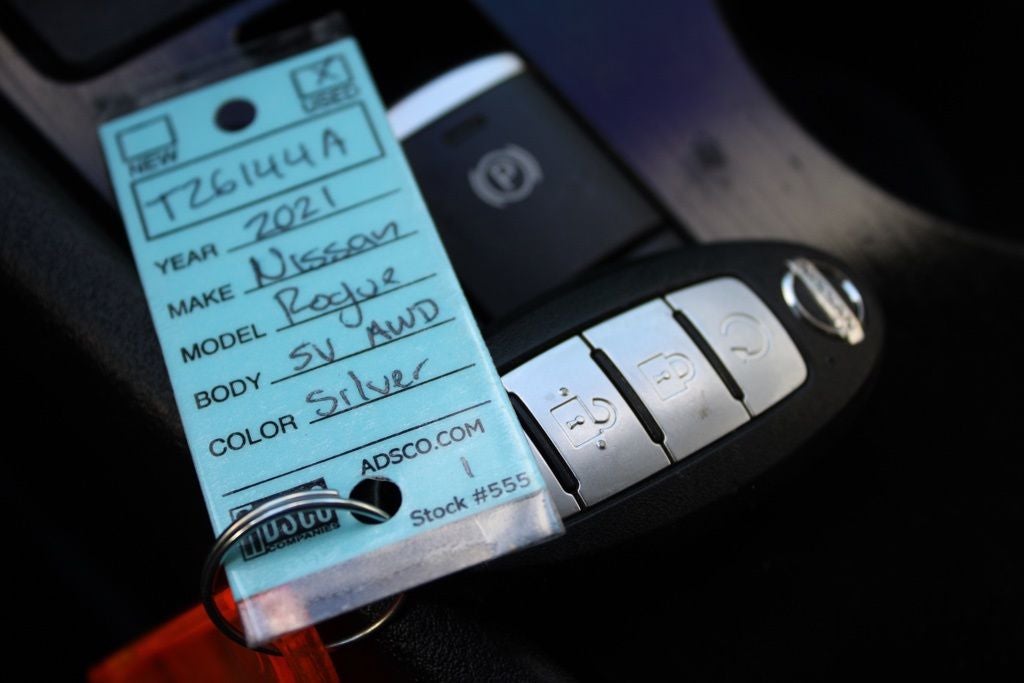 X
NEW USED
TZ6144A
YEAR 2021
MAKE Nissan
MODEL Rogue
BODY SV AWD
COLOR Silver
ADSCO.COM
1
ADSCO
COMPANIES
Stock #555
P